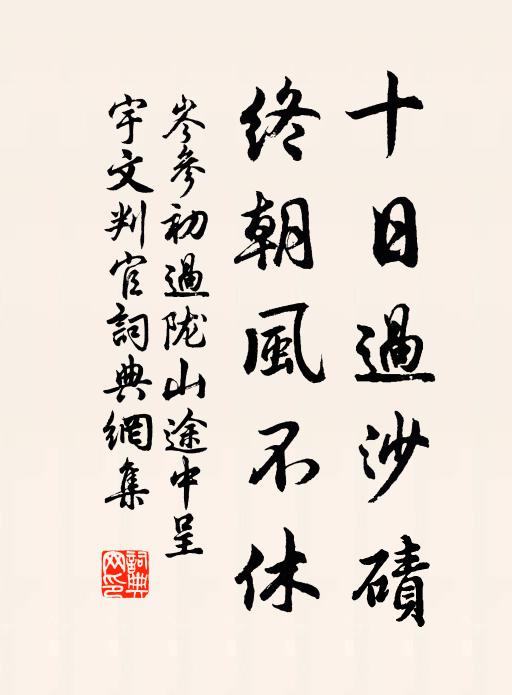 十日過沙磧
終朝風不休
岑參初過陇山途中呈
宇文判官詞典網集
詞典
网印